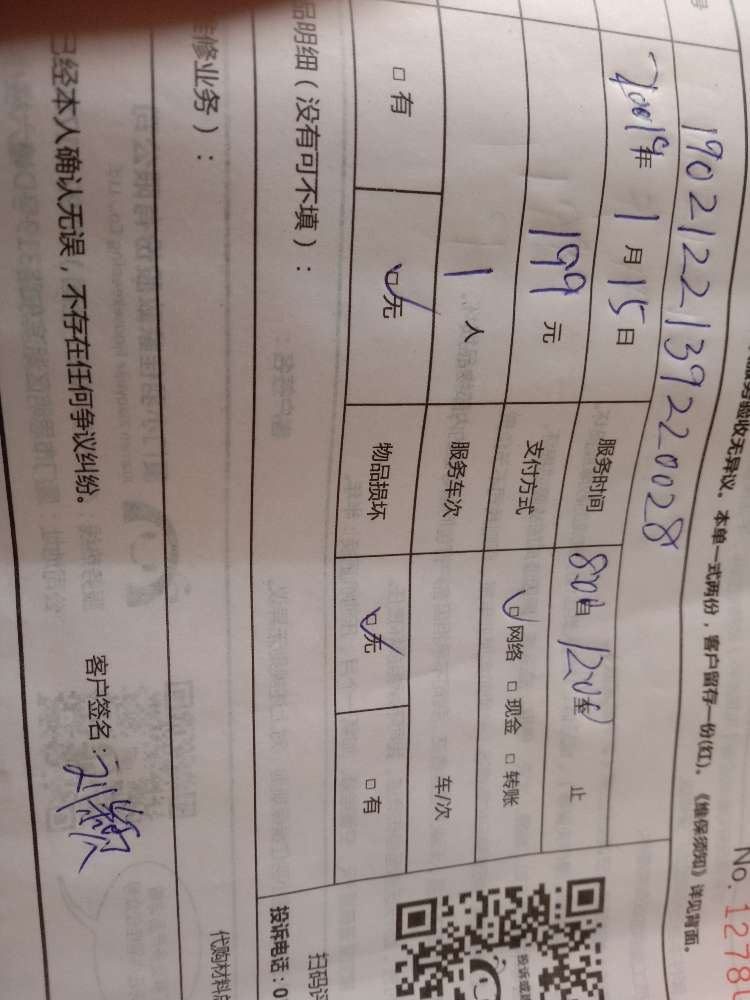 号
No.1278
服务验收无异议。本单一式两份，客户留存一份(红)。《维保须知》详见背面。
1902122139220028
2019年 1月15日 服务时间 8:00自 12:0至 止
199元 支付方式 网络 □ 现金 □ 转账
1人 服务车次 车/次
□ 有 □无 物品损坏 □无 □ 有
品明细（没有可不填）：
扫码
投诉电话：0
投诉或
修业务）：
代购材料
已经本人确认无误，不存在任何争议纠纷。 客户签名：